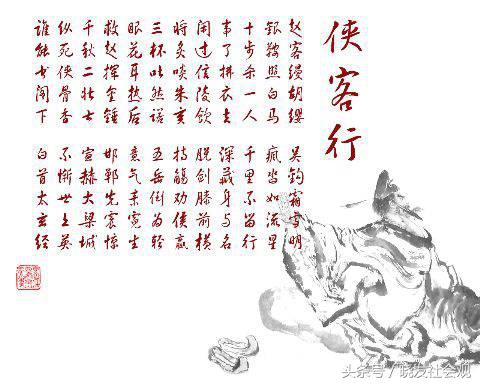 侠客行
赵客缦胡缨 吴钩霜雪明
银鞍照白马 飒沓如流星
十步杀一人 千里不留行
事了拂衣去 深藏身与名
闲过信陵饮 脱剑膝前横
将炙啖朱亥 持觞劝侯嬴
三杯吐然诺 五岳倒为轻
眼花耳热后 意气素霓生
救赵挥金锤 邯郸先震惊
千秋二壮士 宣赫大梁城
纵死侠骨香 不惭世上英
谁能书阁下 白首太玄经
头条号/社会观